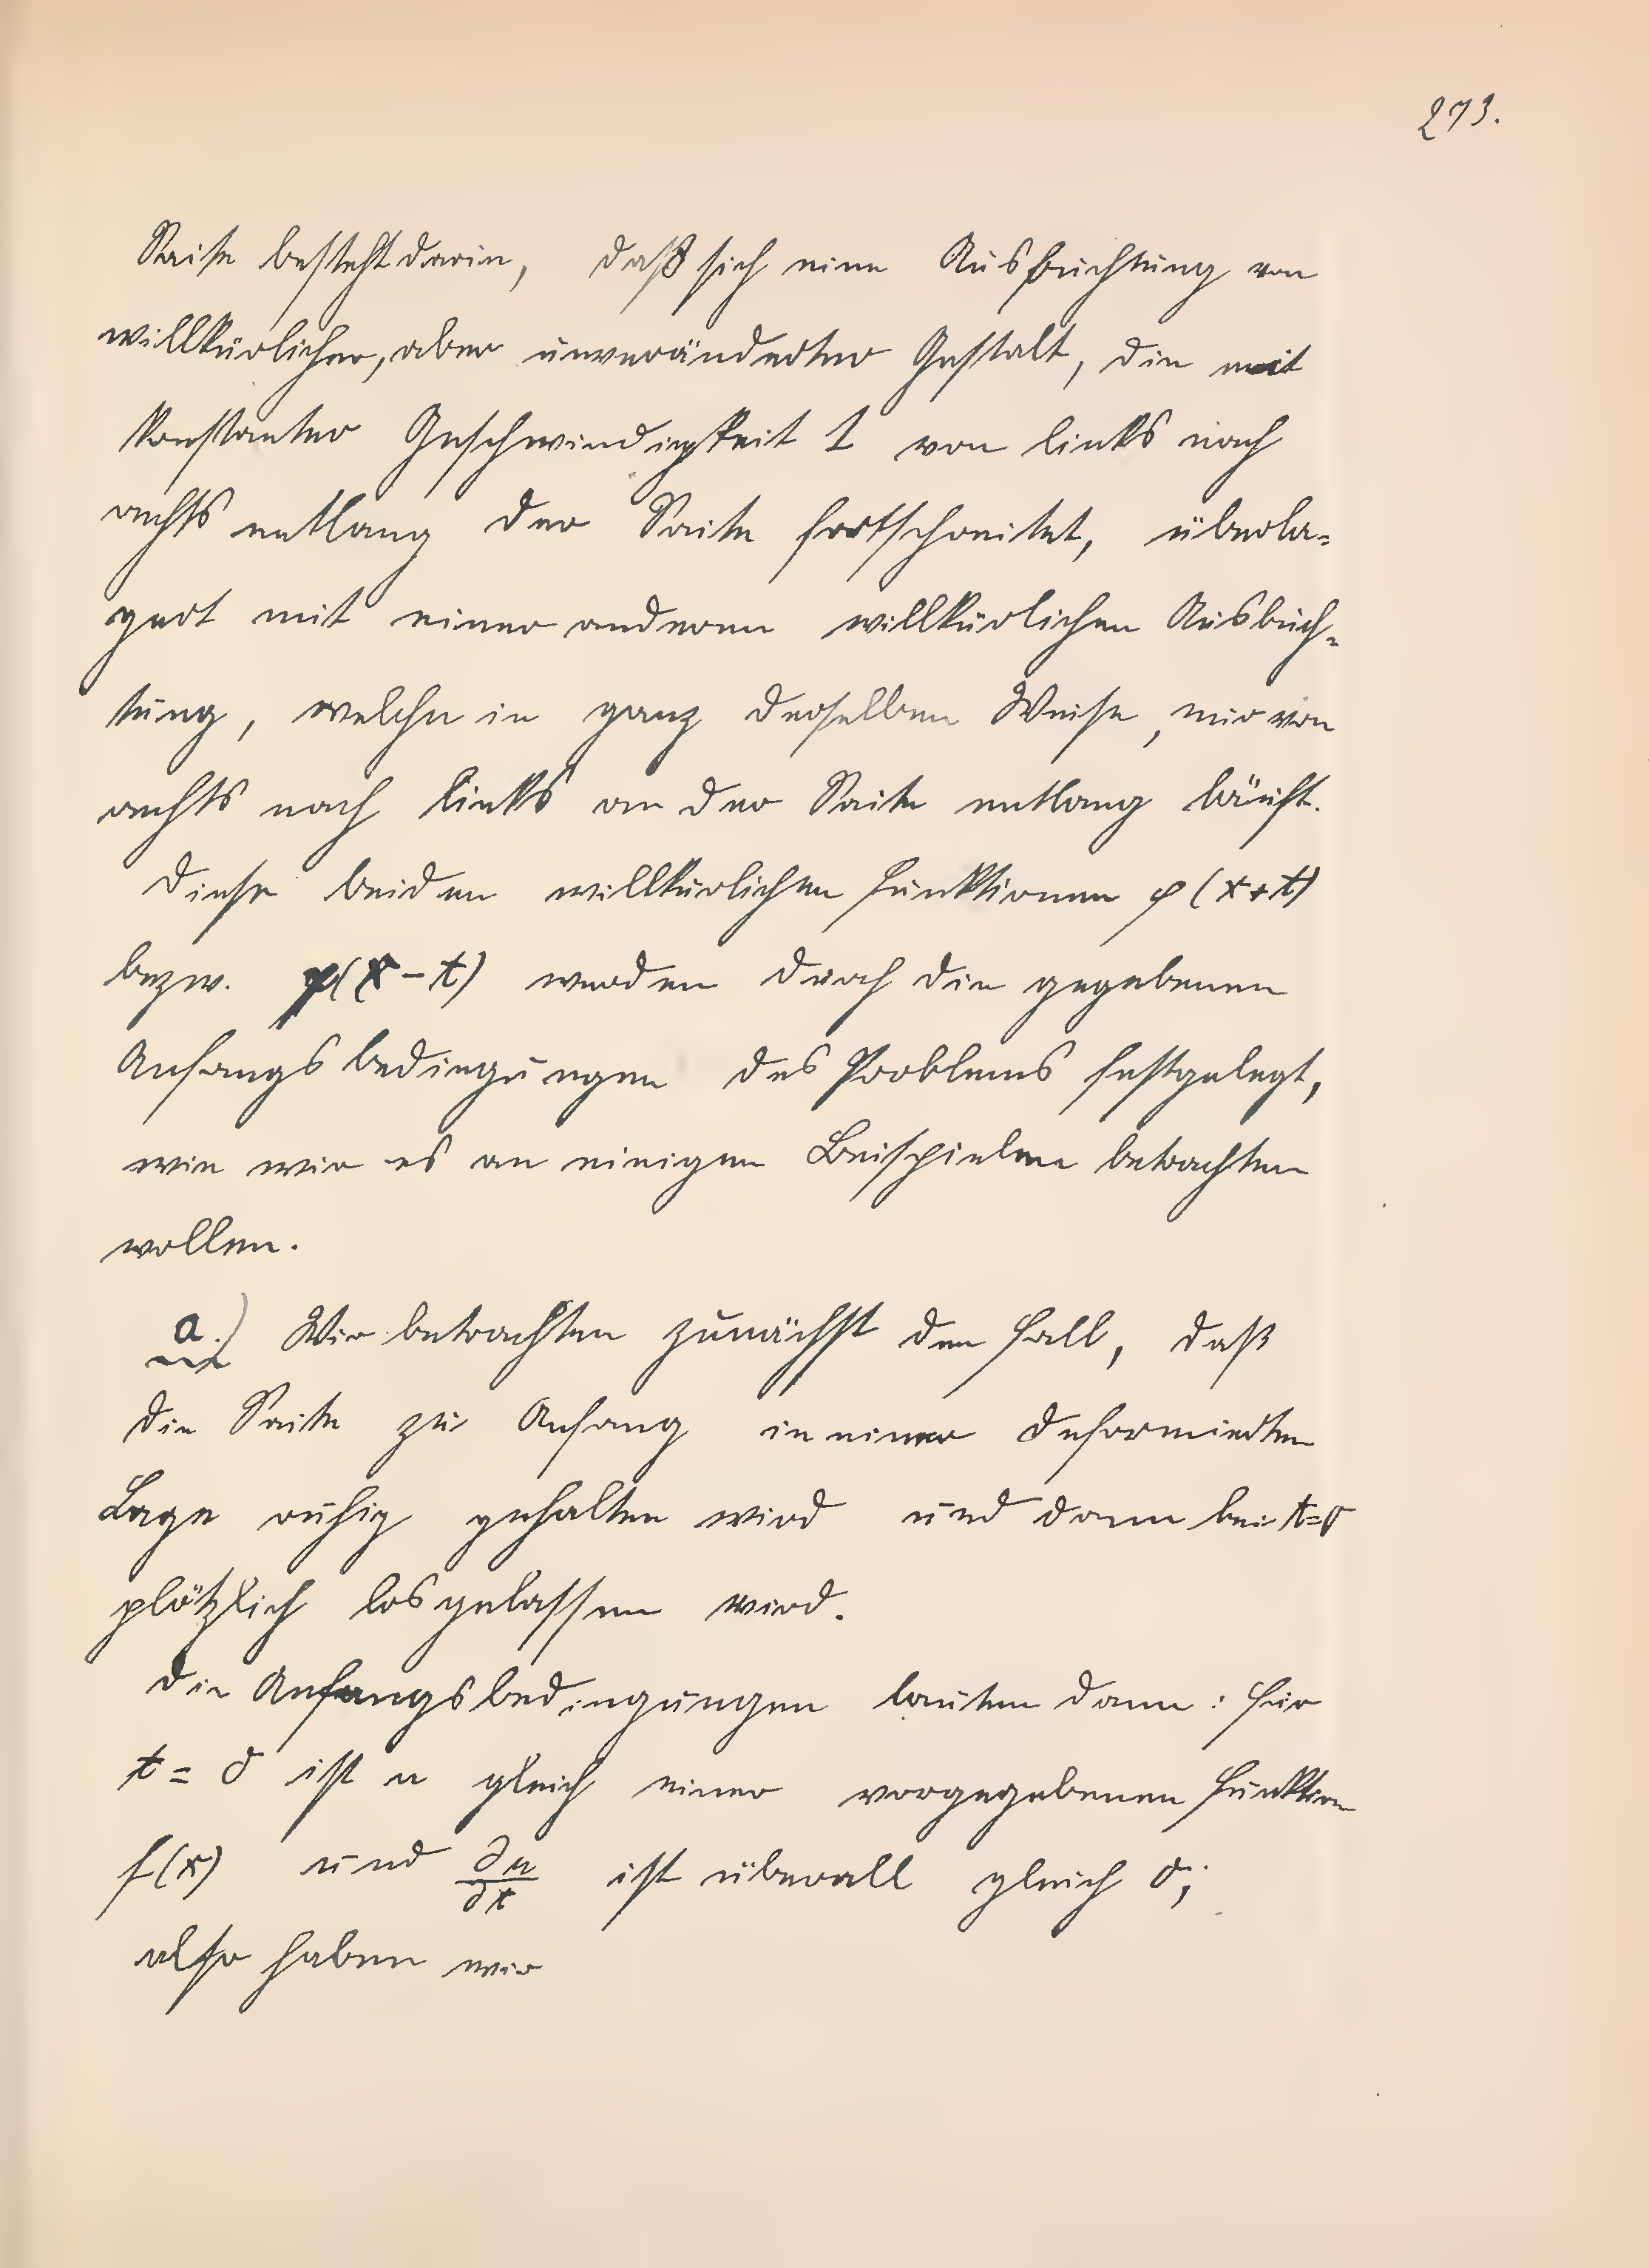 273.
Saite besteht darin, daß sich eine Ausbuchtung von
willkürlicher, aber unveränderter Gestalt, die mit
konstanter Geschwindigkeit 1 von links nach
rechts entlang der Saite fortschreitet, überla=
gert mit einer anderen willkürlichen Ausbuch=
tung, welche in ganz derselben Weise, nur von
rechts nach links an der Saite entlang läuft.
Diese beiden willkürlichen Funktionen φ(x+t)
bezw. ψ(x-t) werden durch die gegebenen
Anfangsbedingungen des Problems festgelegt,
wie wir es an einigen Beispielen betrachten
wollen.
a.) Wir betrachten zunächst den Fall, daß
die Saite zu Anfang in einer deformierten
Lage ruhig gehalten wird und dann bei t=0
plötzlich losgelassen wird.
Die Anfangsbedingungen lauten dann: für
t = 0 ist u gleich einer vorgegebenen Funktion
f(x) und ∂u/∂t ist überall gleich 0;
also haben wir